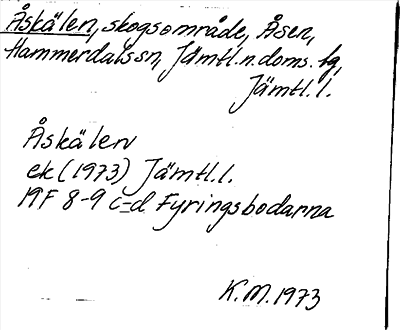 Åskälen, skogsområde, Åsen,
Hammerdalssn, Jämtl.n.doms. tg,
Jämtl.l.
Åskälen
ek (1973) Jämtl.l.
19F 8-9 c-d Fyringsbodarna
K.M. 1973